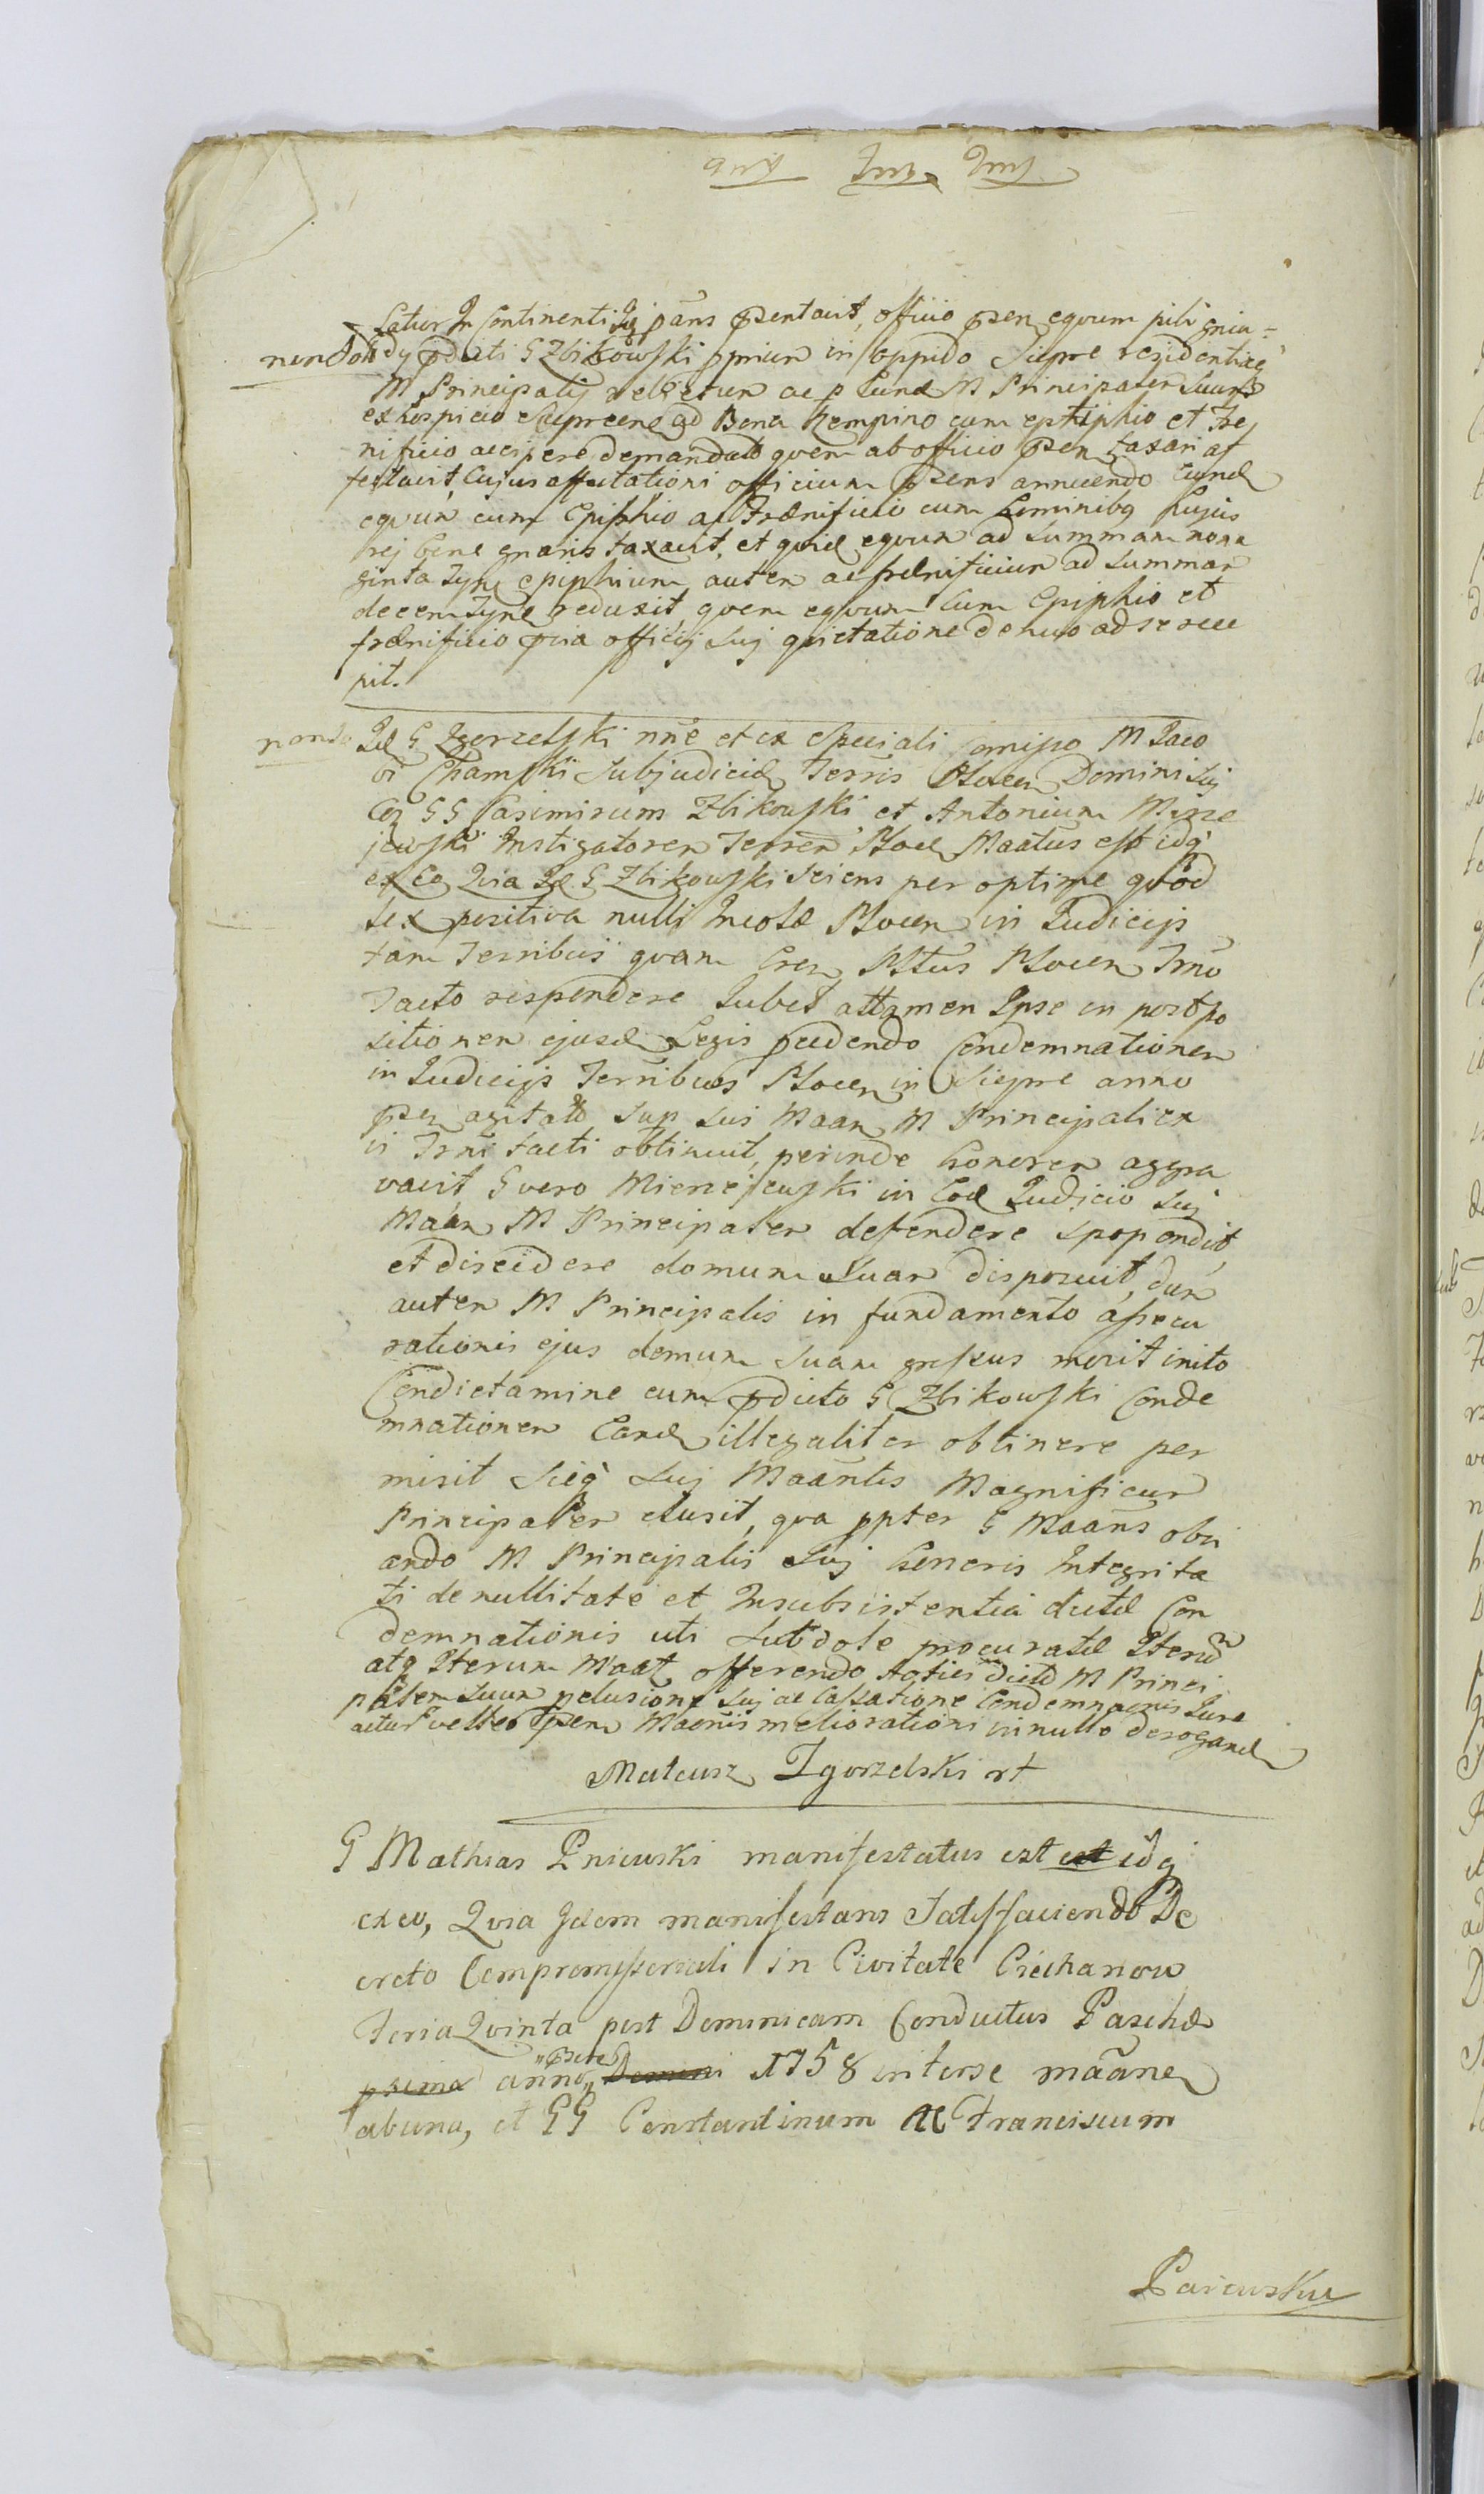 latur In Continenti Idq pans psentavit, officio psen equum pili gnia-
dy pdicti G Zbikowski pprium in oppido Siepre residentiaeq
M Principalij relictum ac p Eund M Principalem suum
ex hospicio Sieprcens ad Bona Kempino cum ephiphio et Fre
nificio accipere demandato quem ab officio psen taxari af
fectavit, Cujus affectationi officium psens annuendo Eund
equum cum Epiphio ac Fraenificio cum hominibq hujus
rej bene gnaris taxavit, et quid equum ad summam nona
ginta Tynf epiphium autem ac fraenificium ad summam
decem Tynf reduxit, quem equum cum Epiphio et
fraenificio pvia officij suj quietatione denuo ad se rece
pit.
Id G Zgorzelski nne et ex speciali Comisso M Jaco
bi Chamski Subjudicis Terris Plocen Domini suj
Coz GG Casimirum Zbikowski et Antonium Mierze
jewski Instigatorem Terren Ploc Maatus est idq
ex Eo Quia Id G Zbikowski sciens per optime quod
lex positiva nulli Incolae Plocen in Judicijs
tam Terribus quam Cren Pltus Plocen Trno
Tacto respondere Jubet attamen Ipse in postpo
sitionem ejusd Legis pcedendo Condemnationem
in Judicijs Terribus Plocen in Siepre anno
psen agitato sup sui Maan M Principali ex
vi Trni tacti obtinuit, perinde honorem aggra
vavit G vero Mierzejewski in Eod Judicio suj
Maan M Principalem defendere spopondit,
et discidere domum suam disposuit, dum
autem M Principalis in fundamento assecu
rationis ejus domum suam gressus movit inito
Condictamine cum pdicto G Zbikowski Conde
mnationem Eand illegaliter obtinere per
misit sicq suj Maantis Magnificum
Principalem elusit, qva ppter G Maans obvi
ando M Principalis suj honoris Integrita
ti de nullitate et Insubsistentia dictae Con
demnationis uti subdole procuratae Iterum
atq Iterum Maat offerendo toties dicto M Princi
palem suum p elusione suj ac Cassatione Condemnaonis Jure
acturum velle psen Maonis meliorationi in nullo derogand
Mateusz Zgorzelski rt
G Mathias Pniewski manifestatus est est idq
ex eo, Quia Idem manifestans Satisfaciendo De
creto Compromissoriali in Civitate Ciechanow
Feria Quinta post Dominicam Conductus Paschae
prima anno psente Domini 1758 inter se maane
ab una, et GG Constantinum ac Franciscum